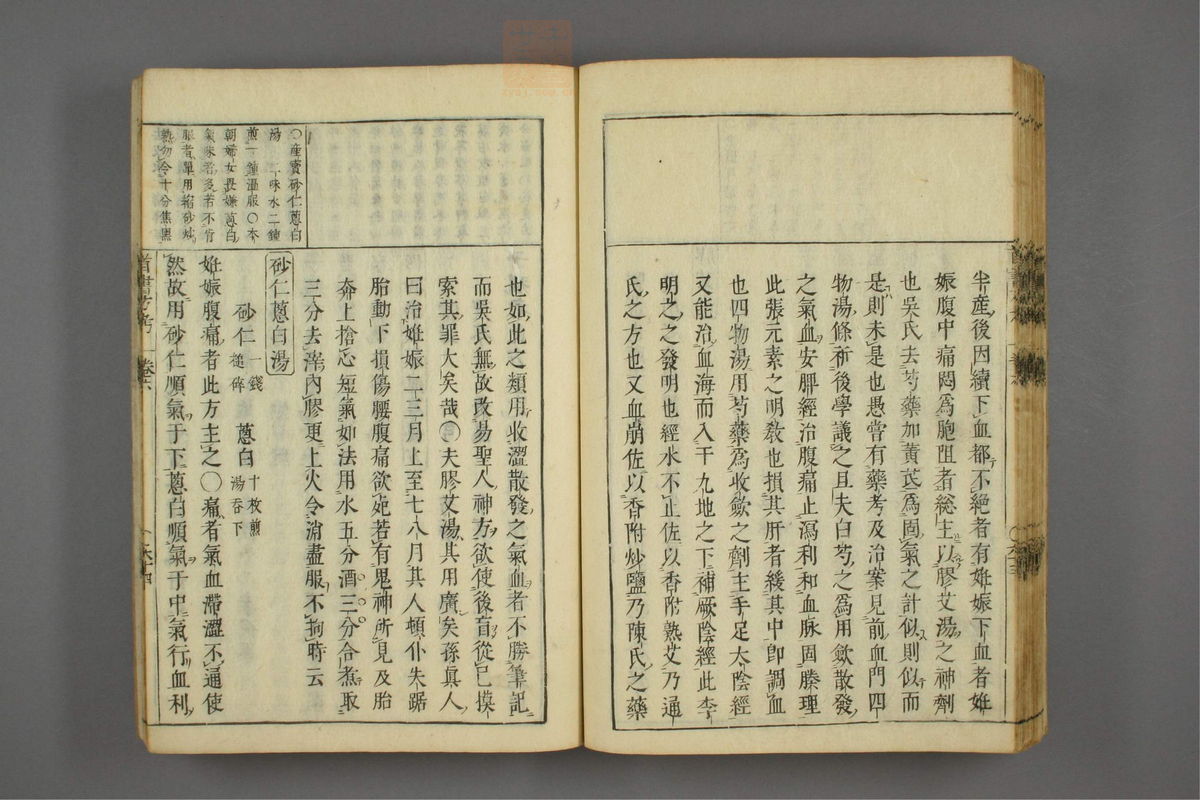 半產後因續下血都不絕者有妊娠下血者妊
娠腹中痛悶爲胞阻者総主以膠艾湯之神劑
也吳氏去芍藥加黃芪爲固氣之計似則似而
是則未是也愚嘗有藥考及治案見前血門四
物湯條祈後學議之且夫白芍之爲用歛散發
之氣血安脾經治腹痛止瀉利和血脉固腠理
此張元素之明敎也損其肝者緩其中卽調血
也四物湯用芍藥爲收歛之劑主手足太陰經
又能治血海而入于九地之下補厥陰經此李
明之之發明也經水不正佐以香附熟艾乃通
氏之方也又血崩佐以香附炒鹽乃陳氏之藥
也如此之類用收澀散發之氣血者不勝筆記
而吳氏無故改易聖人神方欲使後盲從己摸
索其罪大矣哉〇夫膠艾湯其用廣矣孫眞人
曰治妊娠二三月上至七八月其人頓仆失踞
胎動下損傷腰腹痛欲死若有鬼神所見及胎
奔上搶心短氣如法用水五分酒三分合煮取
三分去滓內膠更上火令消盡服不拘時云
〇產寶砂仁蔥白
湯 一味水二鍾
煎一鍾溫服〇本
朝婦女畏嫌蔥白
氣味者多若不肯
服者單用縮砂炒
熱勿令十分焦黑
砂仁蔥白湯
砂仁 一錢 槌碎 蔥白 十枚煎 湯呑下
妊娠腹痛者此方主之〇痛者氣血滯澀不通使
然故用砂仁順氣于下蔥白順氣于中氣行血利